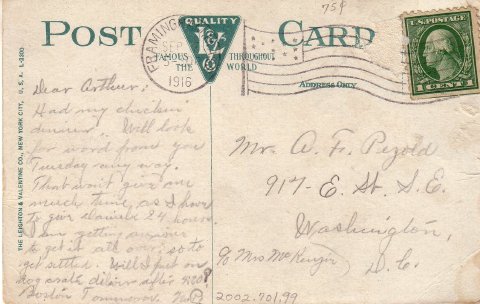 75¢
POST CARD
QUALITY
L V
FAMOUS THROUGHOUT
THE WORLD
FRAMING
SEP
1916
U.S. POSTAGE
1 CENT 1
ADDRESS ONLY
THE LEIGHTON & VALENTINE CO., NEW YORK CITY, U. S. A.
Dear Arthur:
Had my chicken
dinner. Will look
for word from you
Tuesday any way.
That won't give me
much time, as I have
to give Daniels 24 hours.
I am getting anxious
to get it all over, so to
get settled. Will I put on
dog crate deliver after 930?
Boston Tomorrow.
Mr. A. F. Pezold
917- E. St. S. E.
Washington,
D. C.
c/o Mrs McKenzie
2002.701.99